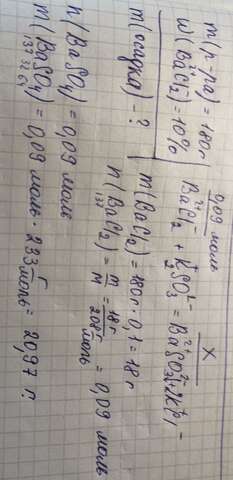 m(р-ра) = 180г
w(BaCl₂) = 10%
m(осадка) - ?
0,09 моль
x
Ba²⁺Cl₂⁻ + K₂⁺SO₃²⁻ = Ba²⁺SO₃²⁻↓ + 2K⁺Cl⁻
m(BaCl₂) = 180г · 0,1 = 18г
n(BaCl₂) = m/M = 18г / 208 г/моль = 0,09 моль
137
n(BaSO₄) = 0,09 моль
m(BaSO₄) = 0,09 моль · 233 г/моль = 20,97 г.
137 32 64